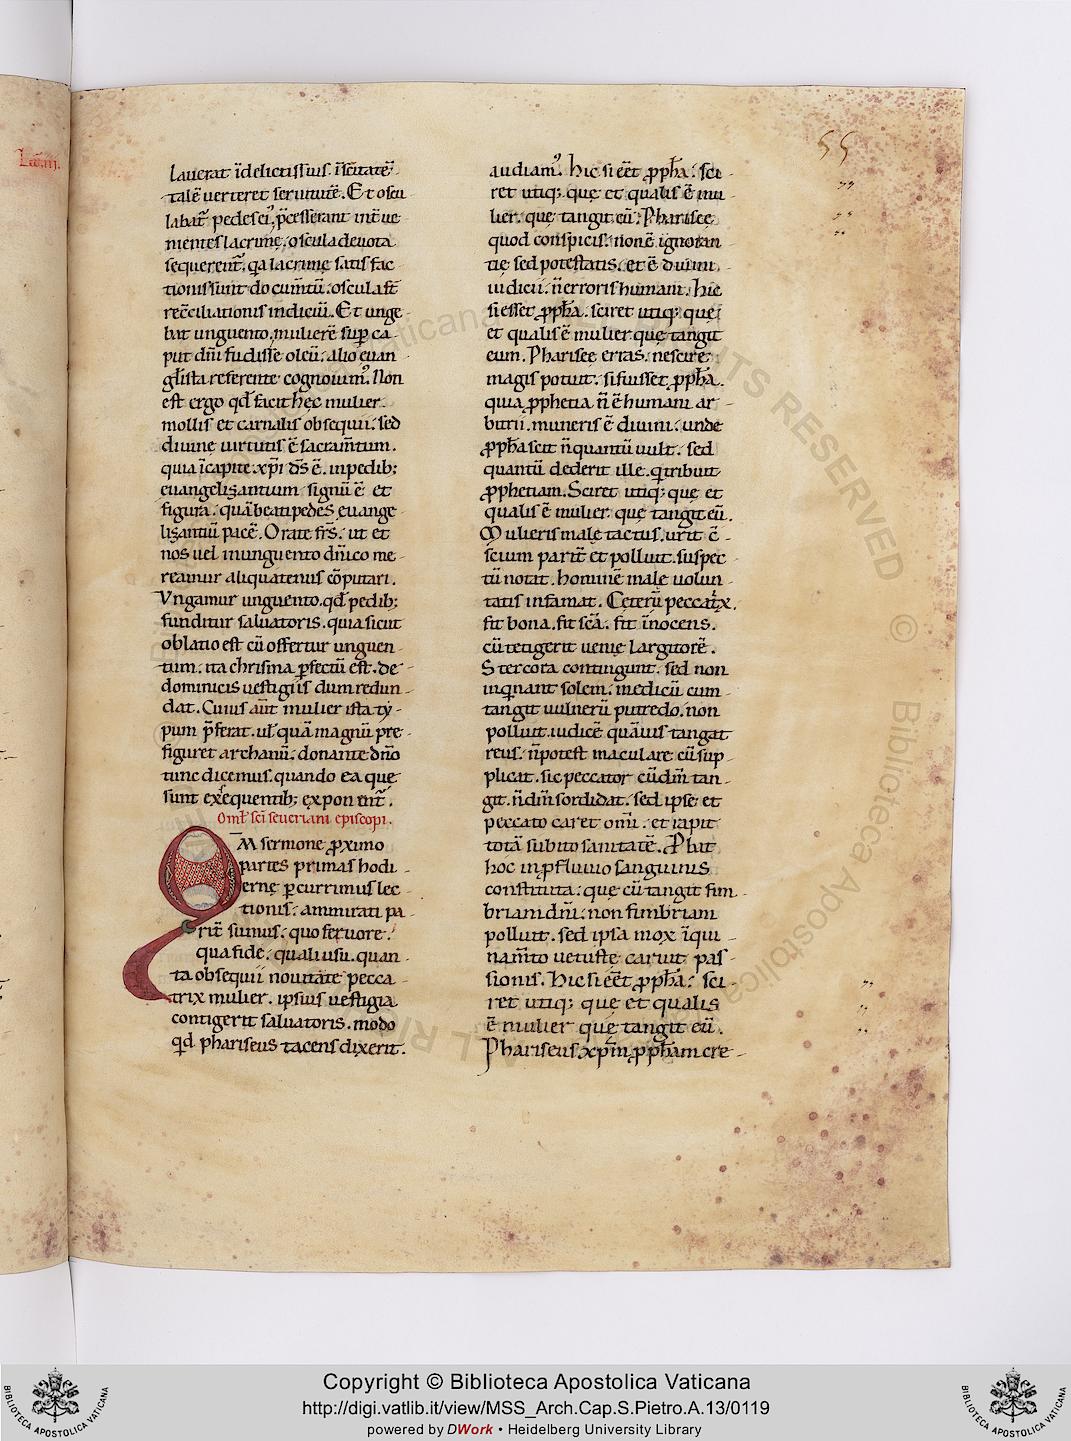 55
lauerat i̅ delictis suis. i̅ sc̅itate̅
tale̅ uerteret seruitute̅. Et oscu
labat᷑ pedes ei᷒, p̅cesserant int̅ue
nientes lacrimę, oscula deuota
sequerent᷑. q̅a lacrimę satisfac
tionis sunt docum̅tu̅. oscula aut̅
reco̅ciliationis indiciu̅. Et unge
bat unguento, muliere̅ sup̱ ca
put dn̅i fudisse oleu̅. alio euan
gl̅ista referente cognouim᷒. Non
est ergo qd̅ facit hęc mulier
mollis et carnalis obsequii. sed
diuinę uirtutis e̅ sacram̅tum.
quia i̅ capite xp̅i ds̅ e̅. in pedib;
euangelizantium signu̅ e̅ et
figura. qua̅ beati pedes euange
lizantiu̅ pace̅. Orate frs̅. ut et
nos uel in unguento dn̅ico me
reamur aliquatenus co̅putari.
Vngamur unguento. qd̅ pedib;
funditur saluatoris. quia sicut
oblatio est cu̅ offertur unguen
tum. ita chrisma ꝑfectu̅ est. de
dominicis uestigiis dum redun
dat. Cuius aut̅ mulier ista ty
pum p̅ferat. ul̅ qua̅ magnu̅ pre
figuret archanu̅. donante dn̅o
tunc dicemus. quando ea quę
sunt exsequentib; exponent᷑.
Oml̅ sc̅i seueriani episcopi.
QM̅ sermone ꝓximo
partes primas hodi
ernę ꝑcurrimus lec
tionis. ammirati pa
rit̅ sumus. quo feruore.
qua fide. quali usu. quan
ta obsequii nouitate pecca
trix mulier. ipsius uestigia
contigerit saluatoris. modo
qd̅ phariseus tacens dixerit.
audiam᷒. Hic si ee̅t ꝓph̅a. sci
ret utiq; quę et qualis e̅ mu
lier. quę tangit eu̅. Phariseę
quod conspicis. non e̅ ignoran
tię sed potestatis. et e̅ diuini
iudicii. n̅ erroris humani. Hic
si esset ꝓph̅a. sciret utiq; quę
et qualis e̅ mulier quę tangit
eum. Phariseę erras. nescire
magis potuit. si fuisset ꝓph̅a.
quia ꝓphetia n̅ e̅ humani ar
bitrii. muneris e̅ diuini. unde
ꝓph̅a scit n̅ quantu̅ uult. sed
quantu̅ dederit ille. q̅ tribuit
ꝓphetiam. Sciret utiq; quę et
qualis e̅ mulier quę tangit eu̅.
Mulieris male tactus. urit c̅
scium parit̅ et polluit. suspec
tu̅ notat. homine̅ male uolun
tatis infamat. Ceteru̅ peccatⁱx.
fit bona. fit sc̅a. fit i̅nocens.
cu̅ tetigerit uenię largitore̅.
Stercora contingunt. sed non
inq̅nant solem. medicu̅ cum
tangit uulneru̅ putredo. non
polluit. iudice̅ qua̅uis tangat
reus. n̅ potest maculare cu̅ sup
plicat. sic peccator cu̅ dn̅m tan
git. n̅ dn̅m sordidat. sed ipse et
peccato caret om̅i. et rapit
tota̅ subito sanitate̅. Plat
hoc in ꝓfluuio sanguinis
constituta. quę cu̅ tangit fim
briam dn̅i. non fimbriam
polluit. sed ipsa mox i̅qui
nam̅to uetustę caruit pas
sionis. Hic si ee̅t ꝓph̅a. sci
ret utiq; quę et qualis
e̅ mulier quę tangit eu̅.
Phariseus xp̅m ꝓph̅am cre
Copyright © Biblioteca Apostolica Vaticana
http://digi.vatlib.it/view/MSS_Arch.Cap.S.Pietro.A.13/0119
powered by DWork • Heidelberg University Library
BIBLIOTECA APOSTOLICA VATICANA
BIBLIOTECA APOSTOLICA VATICANA